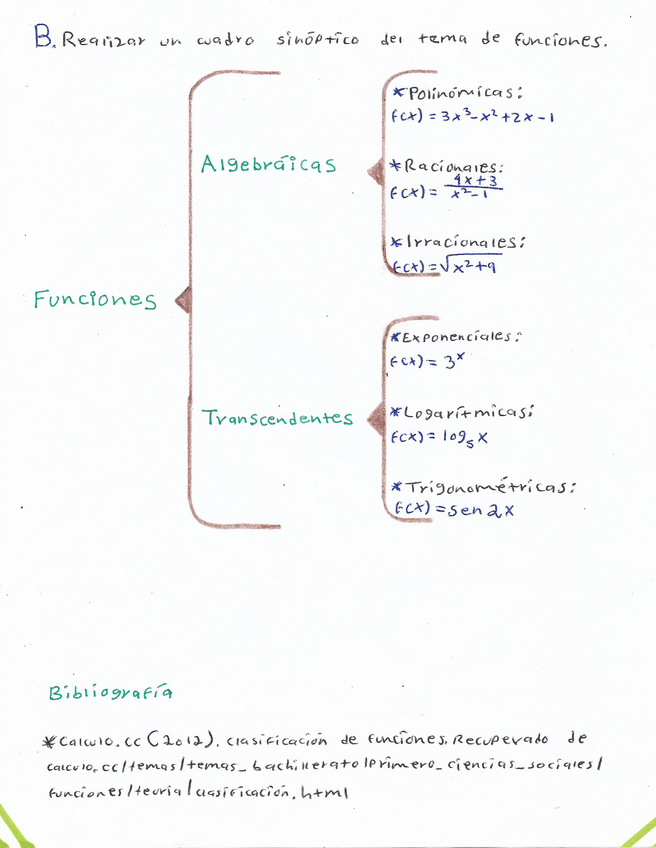 B. Realizar un cuadro sinóptico del tema de funciones.
*Polinómicas:
f(x) = 3x³-x²+2x-1
Algebráicas
*Racionales:
f(x) = 4x+3 / x²-1
*Irracionales:
f(x) = √x²+9
Funciones
*Exponenciales:
f(x) = 3ˣ
Transcendentes
*Logarítmicas:
f(x) = log₅ x
*Trigonométricas:
f(x) = sen 2x
Bibliografía
*Calculo.cc (2012). Clasificación de funciones. Recuperado de
calculo.cc/temas/temas_bachillerato/primero_ciencias_sociales/
funciones/teoria/clasificación.html